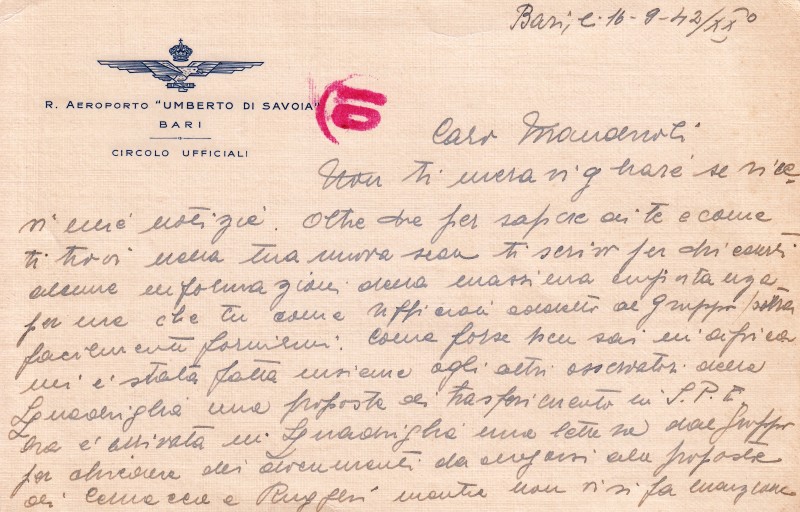 Bari, li 16-9-42/XX°
R. AEROPORTO "UMBERTO DI SAVOIA"
BARI
CIRCOLO UFFICIALI
10
Caro
Non ti meravigliare se rice-
vi mie notizie. Oltre che per sapere di te e come
ti trovi nella tua nuova sede ti scrivo per chiederti
alcune informazioni della massima importanza
per me che tu come ufficiale addetto al gruppo potrai
facilmente fornirmi. Come forse ben sai in Africa
mi è stata fatta insieme agli altri osservatori della
Squadriglia una proposta di trasferimento in S.P.E.
Ora è arrivata in Squadriglia una lettera dal Gruppo
per chiedere dei documenti da allegarsi alla proposta
di e Ruggeri mentre non vi si fa menzione